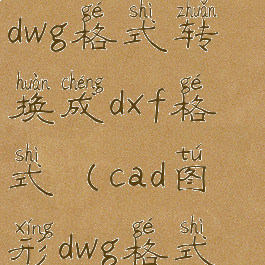 gé shì zhuǎn
dwg格式转
huàn chéng gé
换成dxf格
shì tú
式（cad图
xíng gé shì
形dwg格式